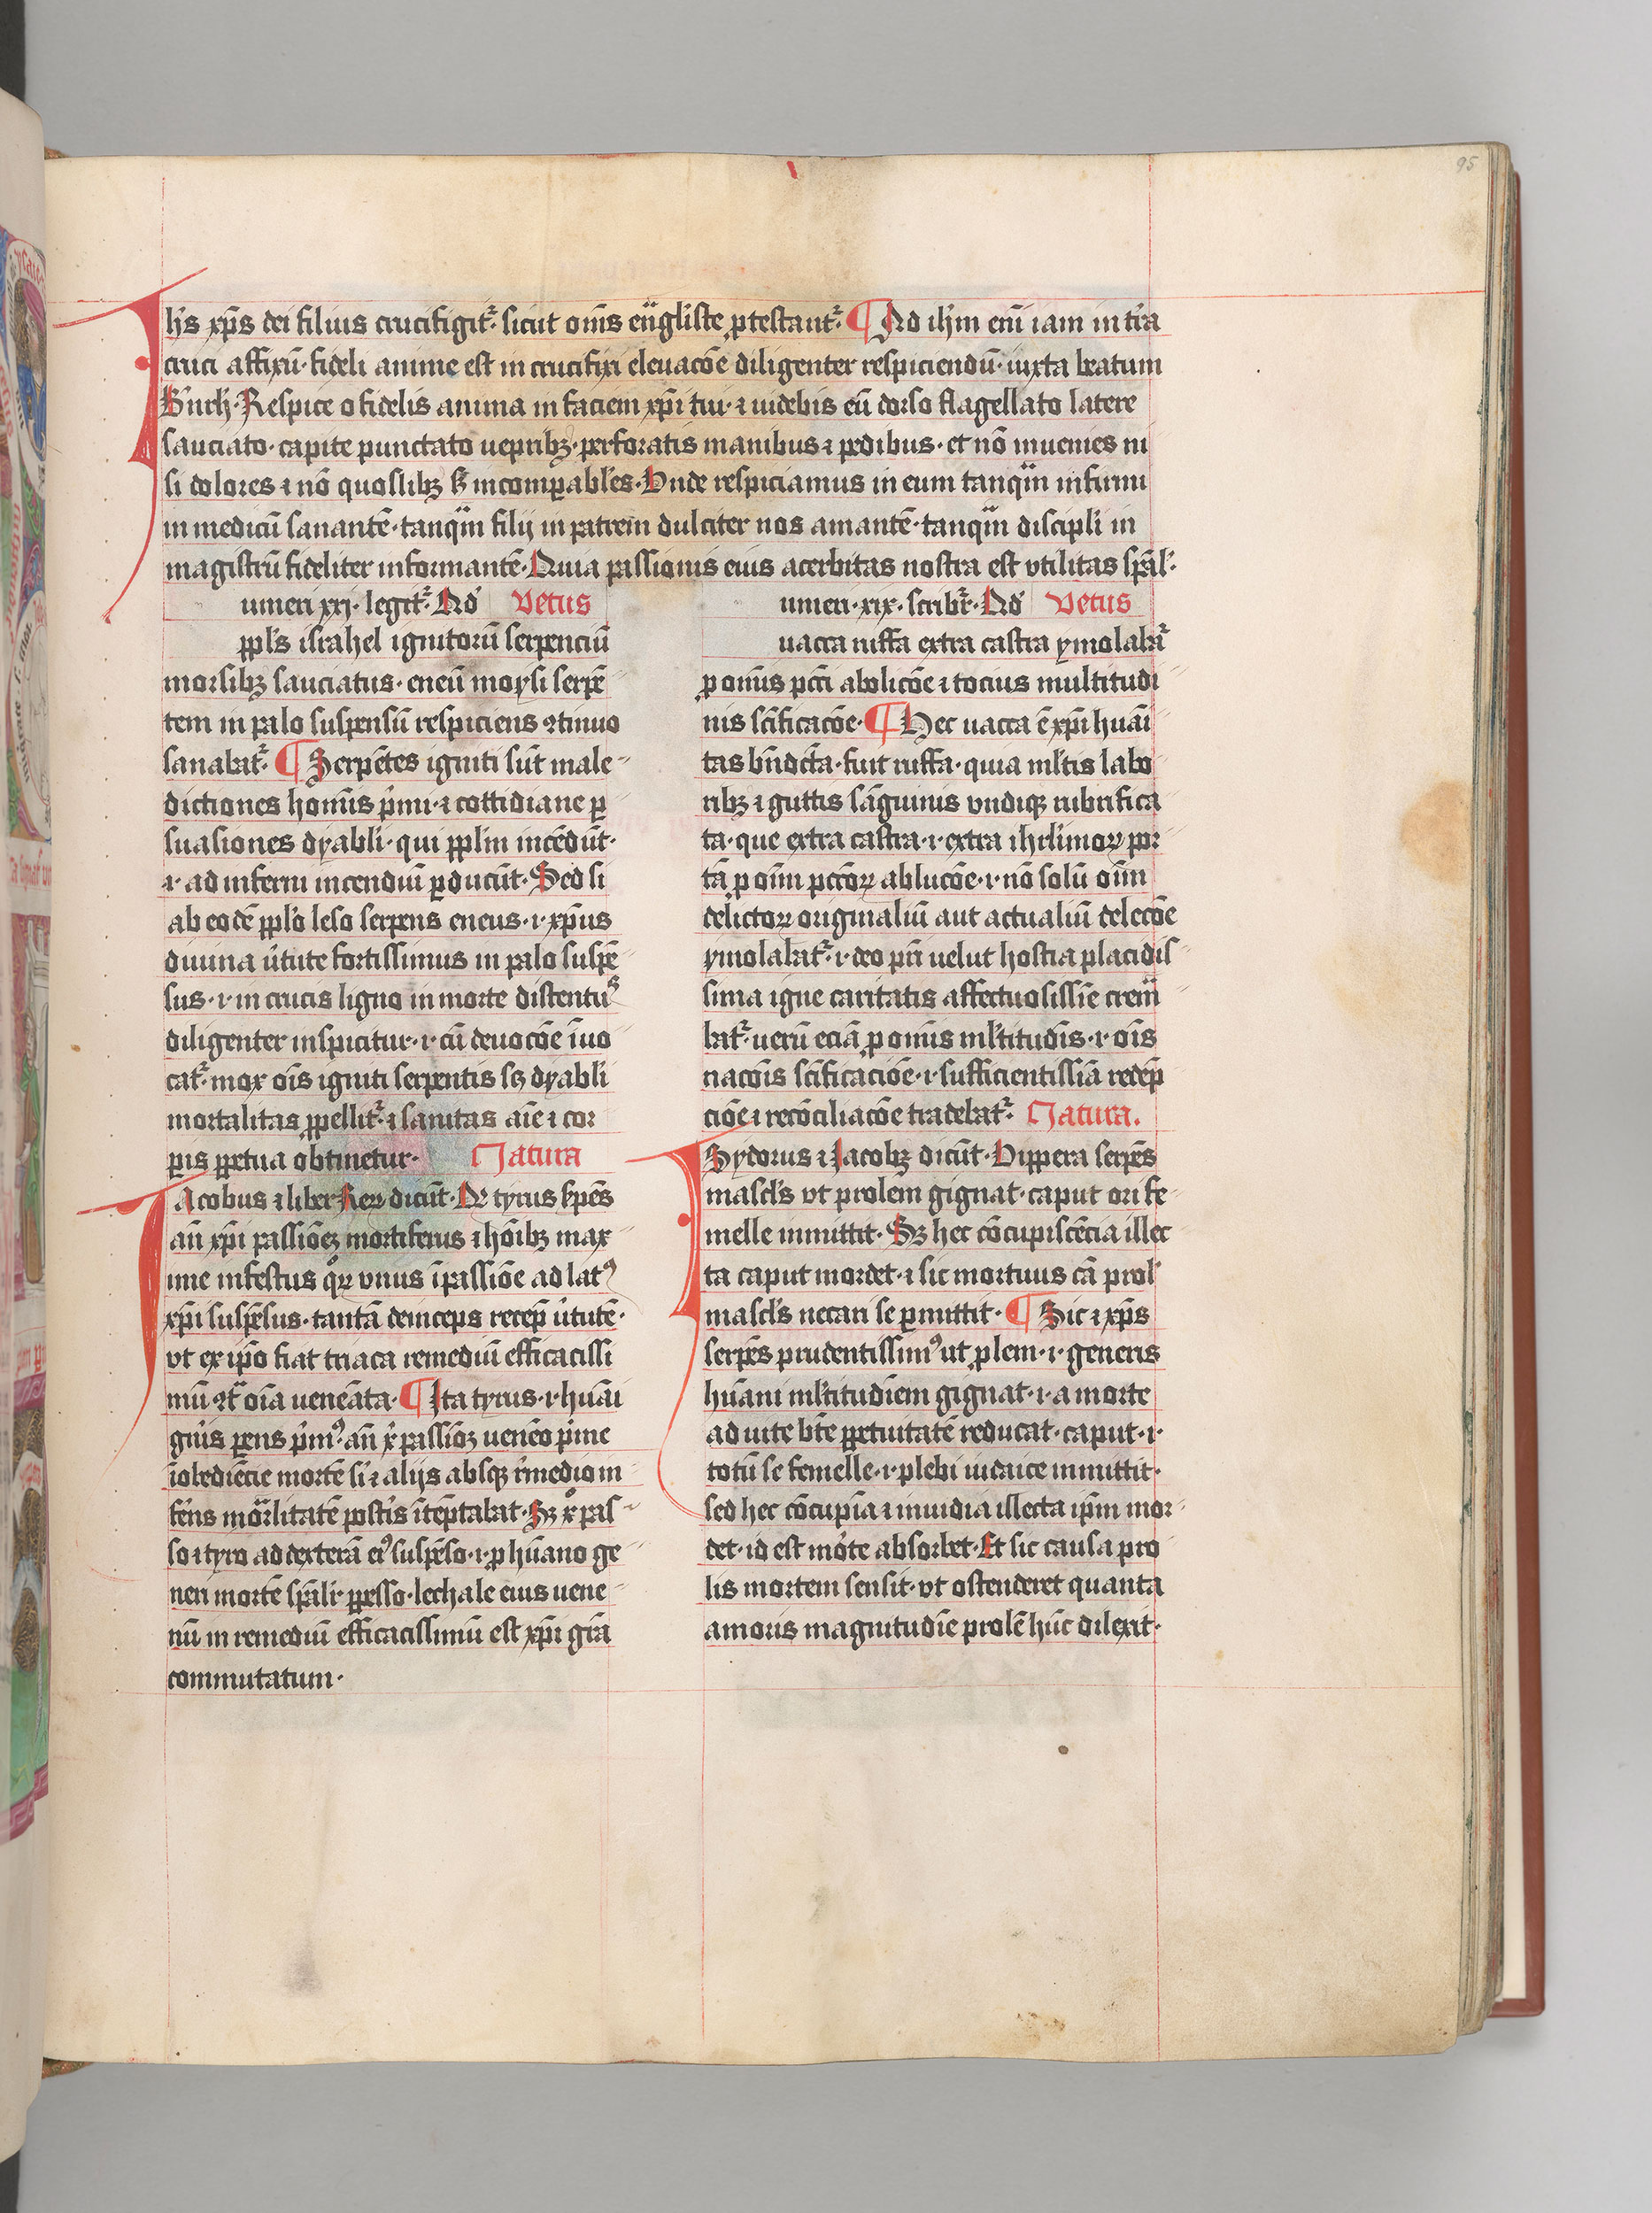 95
Ihs xp̄s dei filius crucifigit᷑· sicut om̄s ewāgliste ꝓtestant᷑· ¶ Ad ihm̄ em̄ iam in tr̄a
cruci affixū· fideli anime est in crucifixi eleuacōe diligenter respiciendū· iuxta beatum
Respice o fidelis anima in faciem xp̄i tui· ⁊ uidebis eū dorso flagellato latere
sauciato· capite punctato uepribꝫ· perforatis manibus ⁊ pedibus· et nō inuenies ni
si dolores ⁊ nō quoslibꝫ sꝫ incomꝑabl'es· Vnde respiciamus in eum tanqͣm infirmi
in medicū sanantē· tanqͣm filij in patrem dulciter nos amantē· tanqͣm discipl'i in
magistrū fideliter informantē· Quia passionis eius acerbitas nostra est vtilitas sp̄al'·
umeri xxj· legit᷑· Ꝙd Vetus
ppl's israhel ignitorū serpenciū
morsibꝫ sauciatus· eneū moysi serpē
tem in palo suspensū respiciens ꝯtinuo
sanabat᷑· ¶ Serpētes igniti sūt male
dictiones hom̄is p̄mi· ⁊ cottidiane ꝑ
suasiones dyabli· qui ppl'm incēdūt·
·i· ad inferni incendiū ꝑducūt· Sed si
ab eodē ppl'o leso serpens eneus· ·i· xp̄us
diuina ūtute fortissimus in palo suspē
sus· ·i· in crucis ligno in morte distentꝰ
diligenter inspicitur· ·i· cū deuocōe īuo
cat᷑· mox ōis igniti serpentis sꝫ dyabli
mortalitas ꝓpellit᷑· ⁊ sanitas aīe ⁊ cor
ꝑis ꝑpetua obtinetur· Natura
Iacobus ⁊ liber Reꝝ dicūt· Ꝙ tyrus sꝑēs
an̄ xp̄i passiōeꝫ mortiferus ⁊ hōibꝫ max
ime infestus qͦꝝ vnus ī passiōe ad latꝰ
xp̄i suspēsus· tantā deinceps recep̄ ūtutē·
vt ex ip̄o fiat triaca remediū efficacissi
mū ꝯtͣ oīa ueneāta· ¶ Ita tyrus· ·i· huāi
gn̄is ꝑens p̄mꝰ· an̄ x̄ passiōꝫ ueneō p̄me
īobediēcie mortē si ⁊ alijs absqꝫ r̄medio in
ferns mōrlitatē postis īteptabat· Sꝫ x̄ pas
so ⁊ tyro ad dexterā eiꝰ suspēso· ·i· ꝓ hūano ge
neri mortē sp̄alr̄ ꝑpesso· lechale eius uene
nū in remediū efficacissimū est xp̄i gr̄a
commutatum·
umeri· xix· scribr̄· Ꝙd Vetus
uacca ruffa extra castra ymolabat᷑
ꝓ om̄is pcc̄i abolicōe ⁊ tocius multitudi
nis sc̄ificacōe· ¶ Hec uacca ē xp̄i huāi
tas bn̄dc̄ta· fuit ruffa· quia ml'tis labo
ribꝫ ⁊ guttis sāguinis vndiqꝫ rubrifica
ta· que extra castra· ·i· extra ihrl'imoꝝ por
tā ꝓ oīm pcc̄oꝝ ablucōe· ·i· nō solū oīm
delictoꝝ originaliū aut actualiū delecōe
ymolabat᷑· ·i· deo pri uelut hostia placidis
sima igne caritatis affectuosissīe cremͣ
bat᷑· uerū eciā ꝓ om̄is ml'titudīs· ·i· ōis
nacōis sc̄ificaciōe· ·i· sufficientissīā redēp
ciōe ⁊ recōciliacōe tradebat᷑· Natura.
Isydorus ⁊ Iacobꝫ dicūt· Vippera serpēs
mascl's vt prolem gignat· caput ori fe
melle inmittit· Sꝫ hec cōcupiscēcia illec
ta caput mordet· ⁊ sic mortuus cā prol'
mascl's necari se ꝑmittit· ¶ Sic ⁊ xp̄s
serpēs prudentissimꝰ ut ꝓlem· ·i· generis
hūani ml'titudīem gignat· ·i· a morte
ad uite bt̄e ꝑpetuitatē reducat· caput· ·i·
totū se femelle· ·i· plebi iudaice inmittit·
sed hec cōcupīa ⁊ inuidia illecta ip̄m mor
det· id est morte absorbet· Et sic causa pro
lis mortem sensit· vt ostenderet quanta
amoris magnitudīe prolē hūc dilexit·